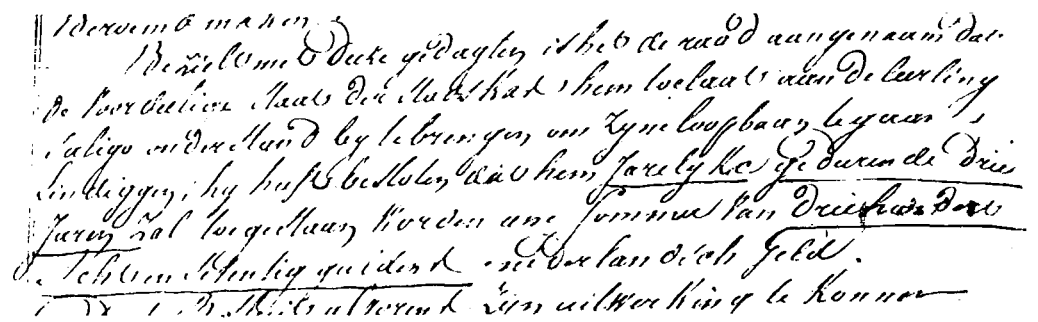 beroemd maken.
Bezield met deze gedagten is het de raad aangenaam dat
de voordelige Staat der Stadskas hem toelaat aan de leerling
Saligo onderstand by te brengen om Zyne loopbaan te gaan
Eindiggen; hy heeft besloten dat hem Jarelyks geduren de drie
Jaren zal toegestaan worden eene somme van driehonderd
achtien guldens nederlandsch geld.
zyn uitwerking te konnen